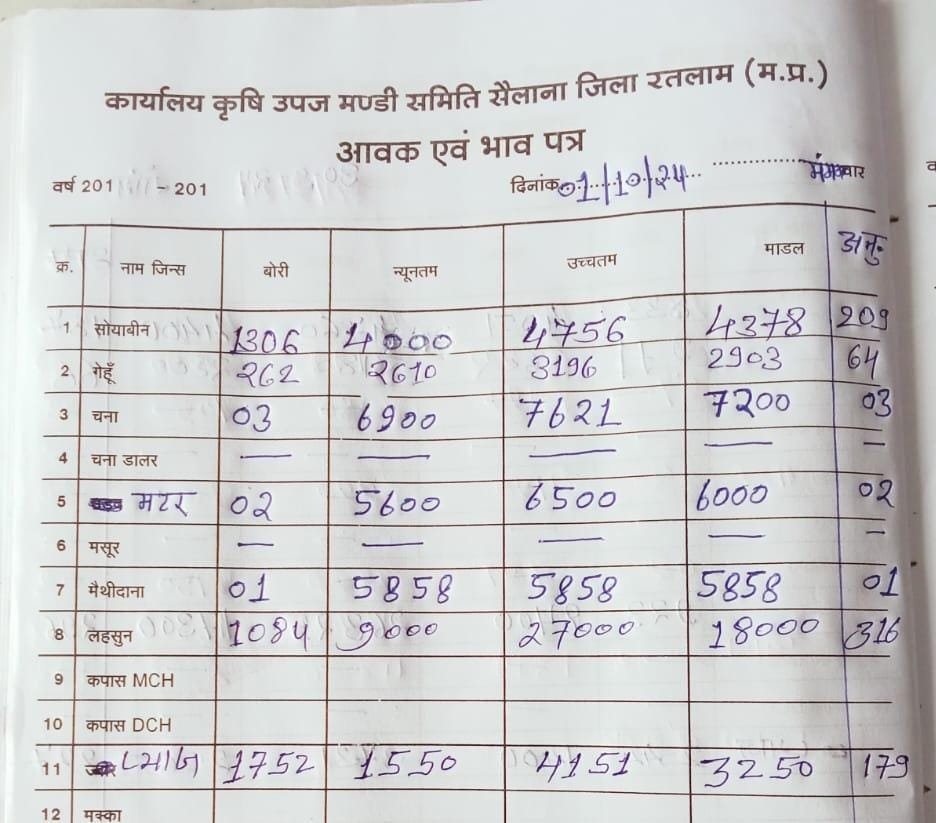 कार्यालय कृषि उपज मण्डी समिति सैलाना जिला रतलाम (म.प्र.)
आवक एवं भाव पत्र
वर्ष 201 - 201 दिनांक 01/10/24 मंगलवार
क्र. नाम जिन्स बोरी न्यूनतम उच्चतम माडल अनु.
1 सोयाबीन 1306 4000 4756 4378 209
2 गेहूँ 262 2610 3196 2903 64
3 चना 03 6900 7621 7200 03
4 चना डालर — — — — —
5 मटर 02 5600 6500 6000 02
6 मसूर — — — — —
7 मैथीदाना 01 5858 5858 5858 01
8 लहसुन 1084 9000 27000 18000 316
9 कपास MCH
10 कपास DCH
11 प्याज 1752 1550 4151 3250 179
12 मक्का